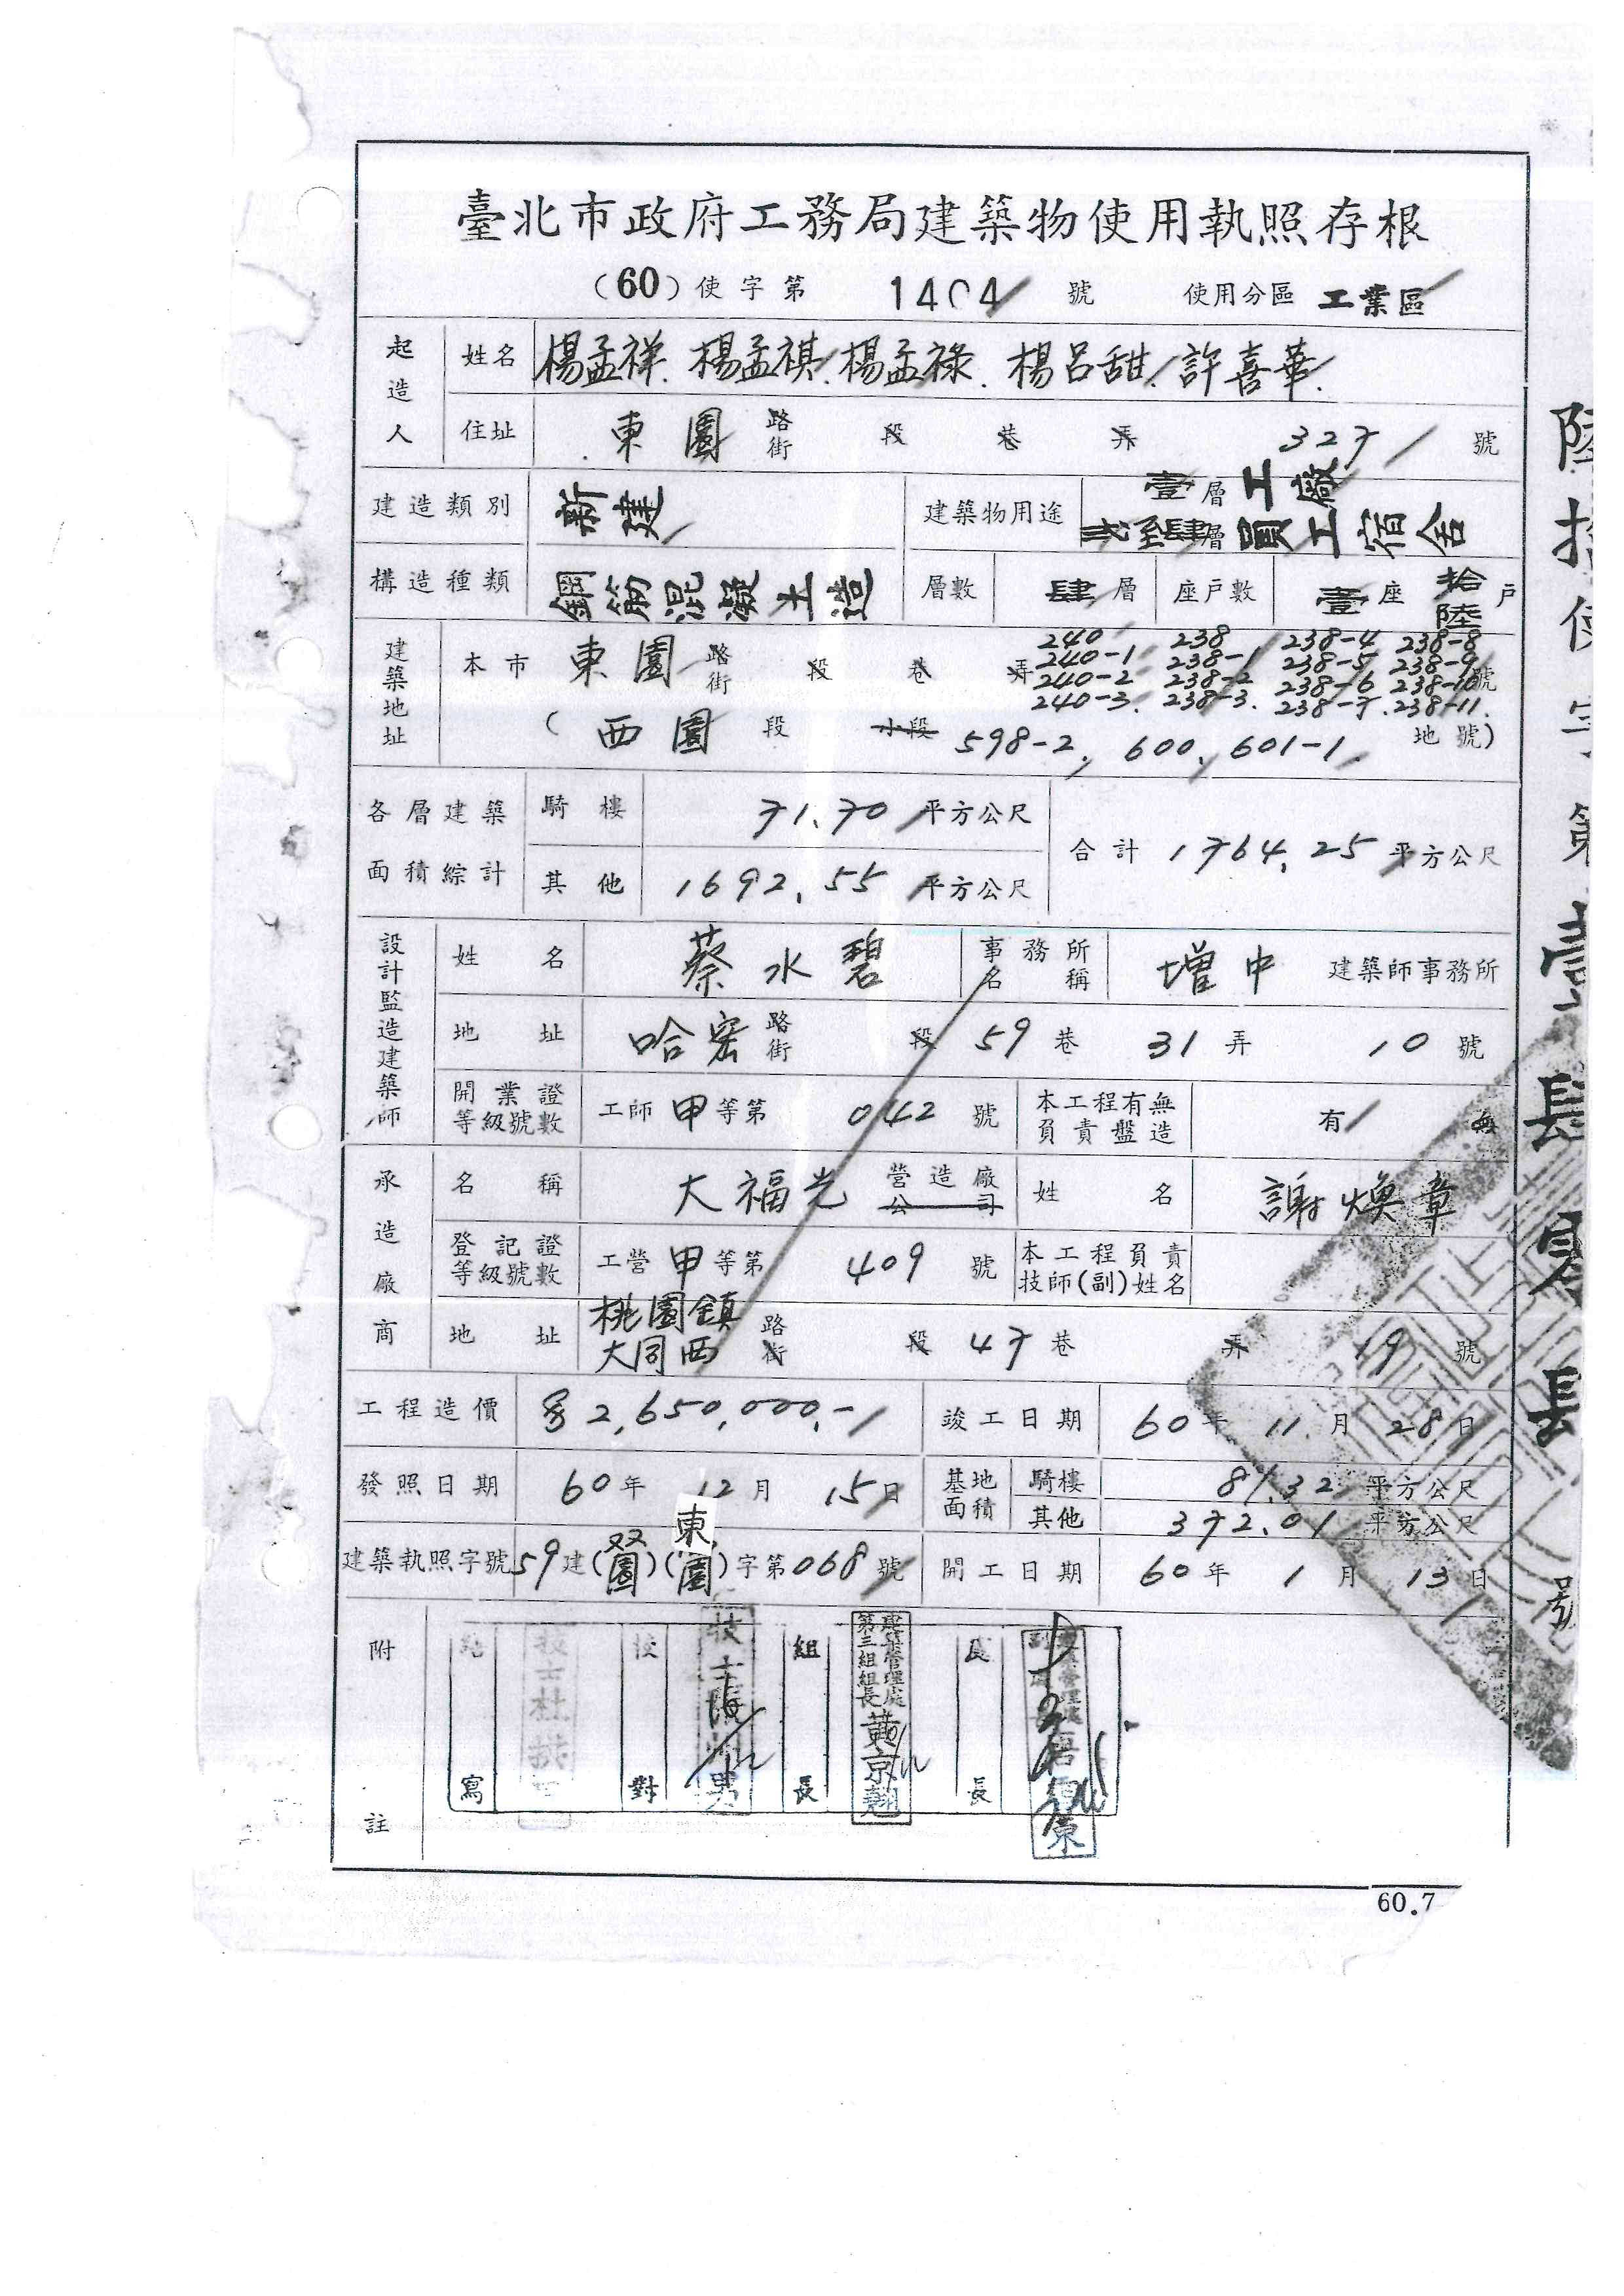 臺北市政府工務局建築物使用執照存根
(60)使字第 1404 號 使用分區 工業區
起造人 姓名 楊孟祥. 楊孟祺. 楊孟祿. 楊呂甜. 許喜華.
住址 東園 路街 段 巷 弄 327 號
建造類別 新建 建築物用途 壹層工廠
貳至肆層員工宿舍
構造種類 鋼筋混凝土造 層數 肆層 座戶數 壹座 拾陸戶
建築地址 本市 東園 路街 段 巷 弄 號
240 238 238-4 238-8
240-1 238-1 238-5 238-9
240-2 238-2 238-6 238-10
240-3. 238-3. 238-7. 238-11.
(西園 段 小段 598-2, 600, 601-1. 地號)
各層建築面積綜計 騎樓 71.70 平方公尺 合計 1764.25 平方公尺
其他 1692.55 平方公尺
設計監造建築師 姓名 蔡水碧 事務所名稱 增中 建築師事務所
地址 哈密 路街 段 59 巷 31 弄 10 號
開業證等級號數 工師 甲 等第 042 號 本工程有無負責盤造 有 無
承造廠商 名稱 大福光 營造廠公司 姓名 謝煥章
登記證等級號數 工營 甲 等第 409 號 本工程負責技師(副)姓名
地址 桃園鎮大同西 路街 段 47 巷 弄 19 號
工程造價 $2,650,000.- 竣工日期 60年 11月 28日
發照日期 60年 12月 15日 基地面積 騎樓 81.32 平方公尺
其他 372.01 平方公尺
建築執照字號 59建( )(東園)字第068號 開工日期 60年 1月 13日
附註
寫 校對 組長 處長
技士 男
建築管理處
第三組組長 黃京翹
60.7
陸拾使字第壹肆零肆號